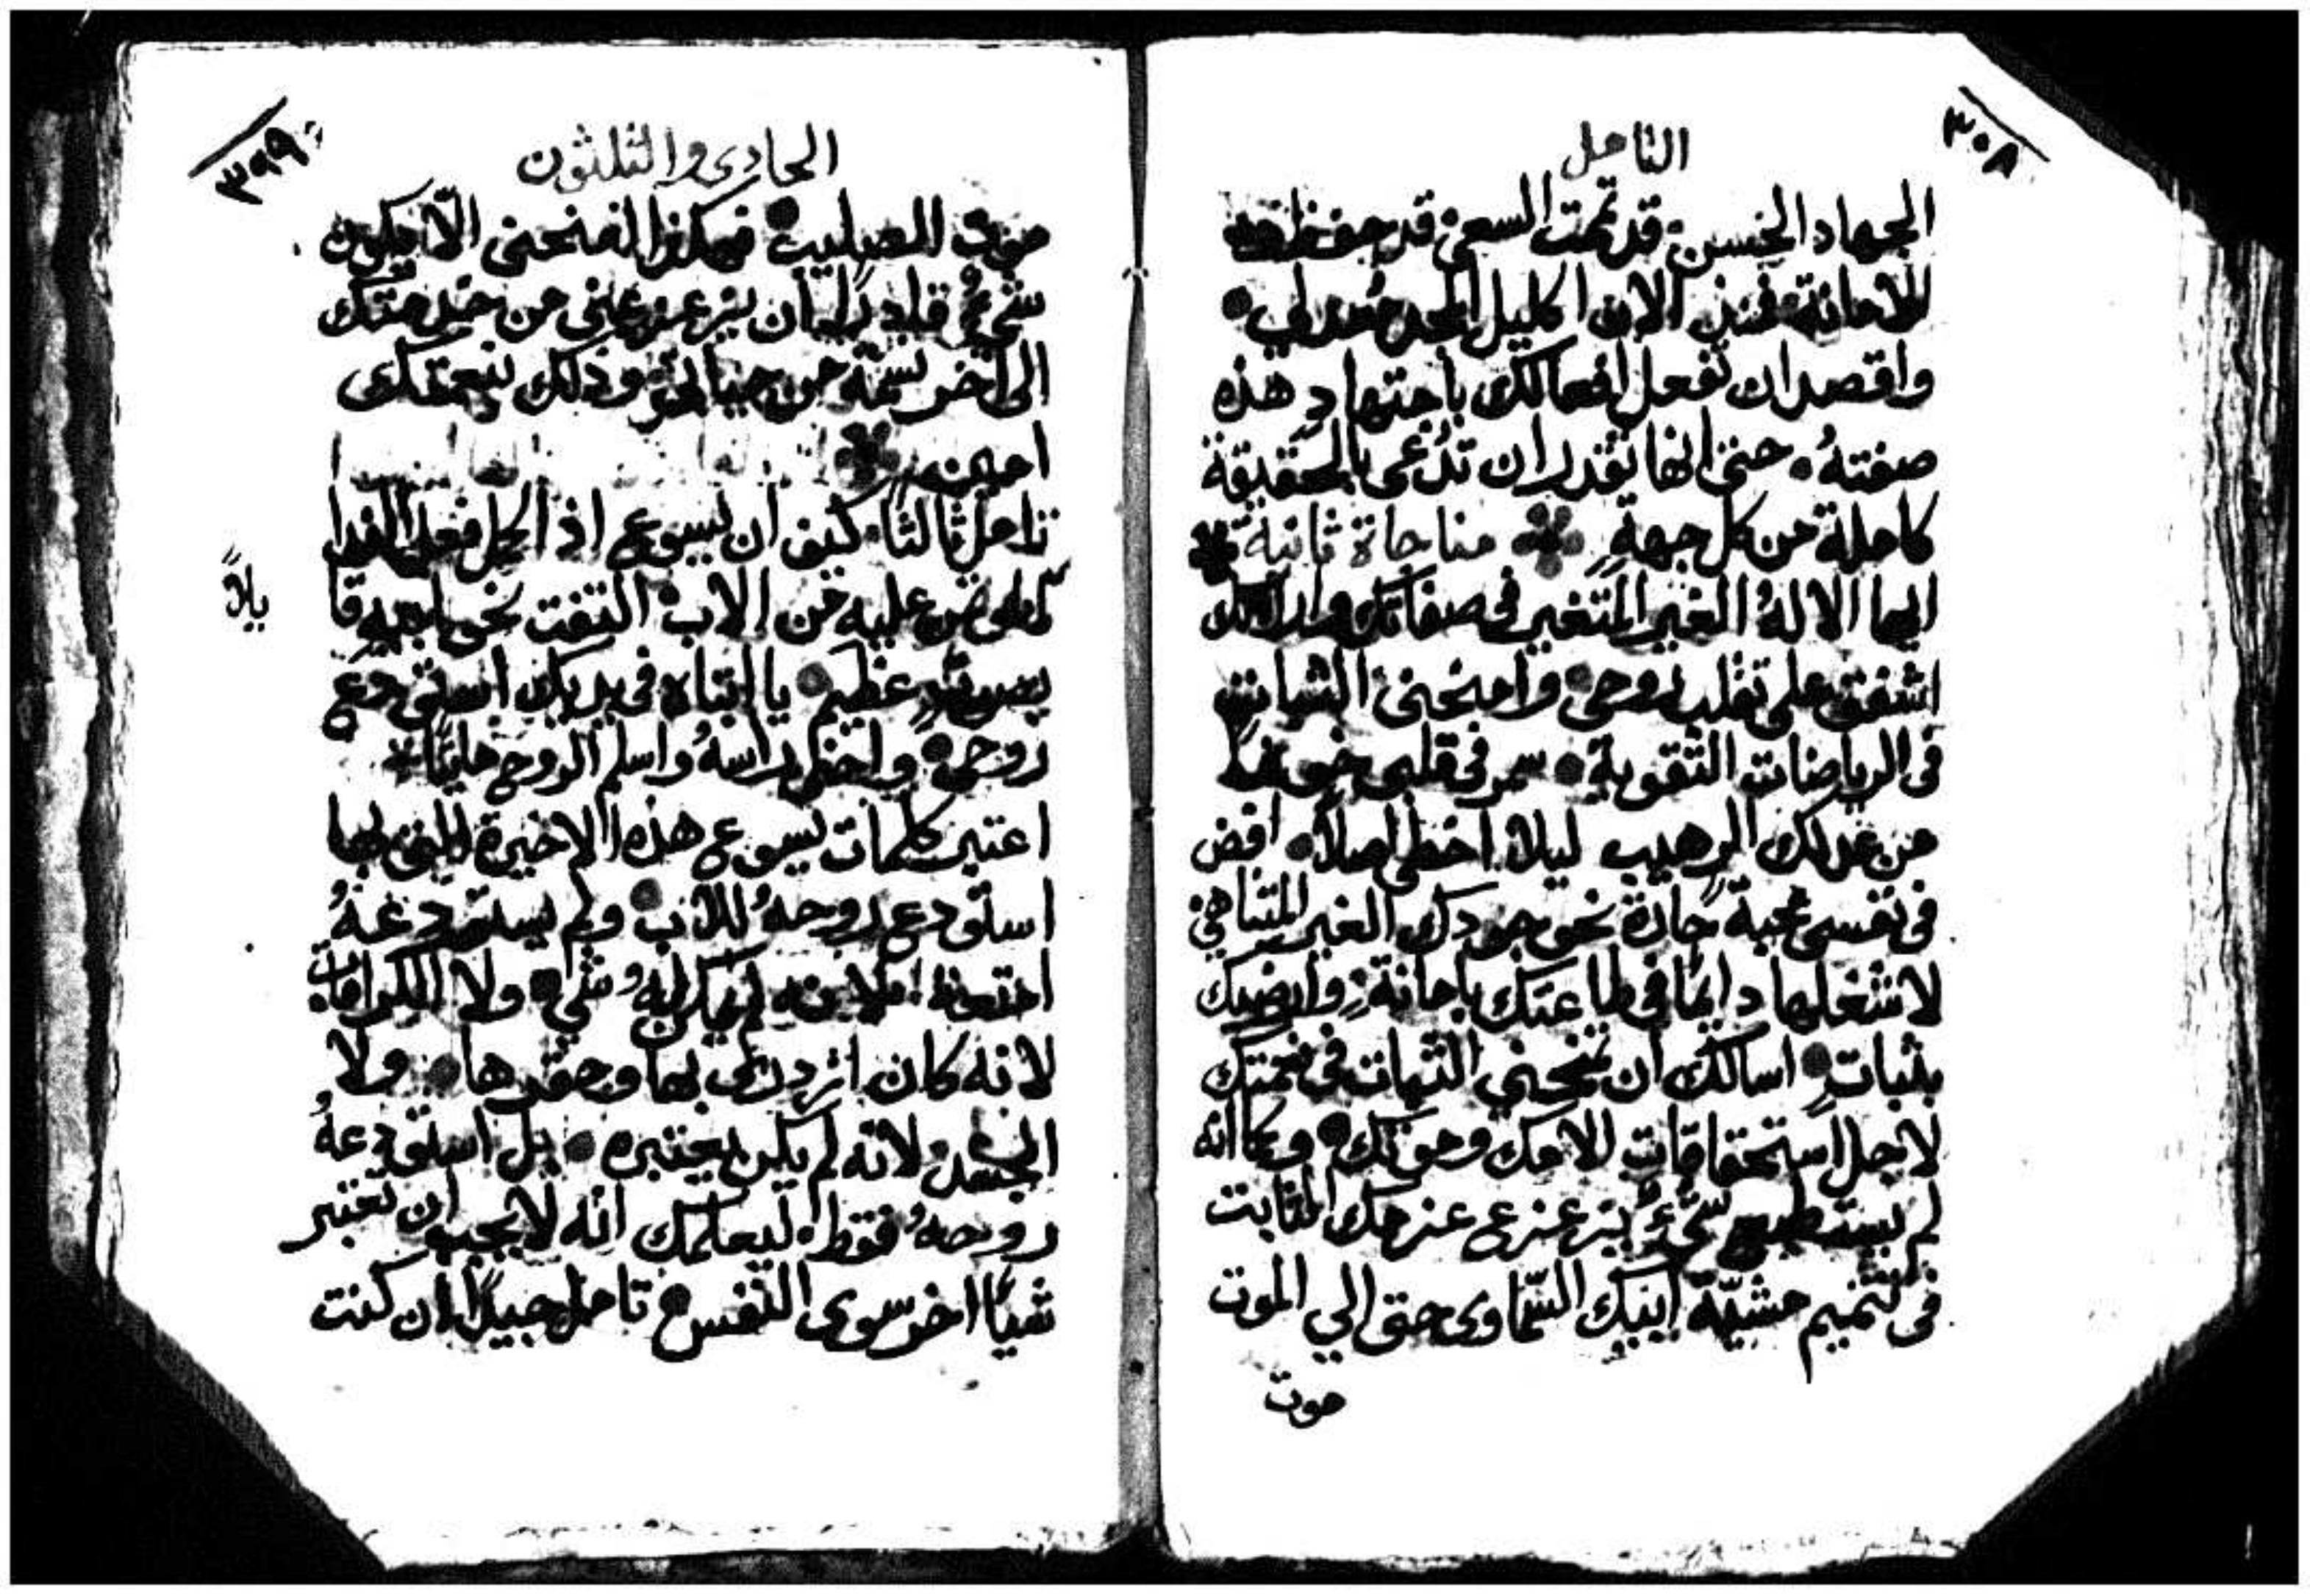 ٣٠٨
التامل
الجهاد الحسن. قد تممت السعي. قد حفظت
الامانة. فمنذ الان اكليل المجد معد لي.
واقصد ان تفعل افعالك باجتهاد هذه
صفته. حتى انها تقدر ان تدعى بالحقيقة
كاملة من كل جهةٍ مناجاة ثانية
ايها الاله الغير المتغير في صفاتك
اشفق على تقلب روحي. وامنحني الثبات
في الرياضات التقوية. سمر في قلبي خوفًا
من عدلك الرهيب ليلا اخطى اصلاً. افض
في نفسي محبة حارة نحو جودك الغير المتناهي
لاشغلها دايمًا في طاعتك بامانة. وارضيك
بثباتٍ. اسالك ان تمنحني الثبات في نعمتك
لاجل استحقاقات الامك وموتك. وكما انه
لم يستطيع شيءٌ يزعزع عزمك الثابت
في تتميم مشيّة ابيك السّماوى حتى الي الموت
موت
٣٩٩
الحادى والثلثون
موت الصليب. فهكذا امنحني الّا يكون
شيءٌ قادرًا ان يزعزعني من خدمتك
الى اخر نسمة من حياتي. وذلك بنعمتك
امين
تامل ثالثًا. كيف ان يسوع اذ اكمل فعل الفدا
المفوض عليه من الاب. التفت نحو ابيه قا
يلاً
بصوتٍ عظيم. يا ابتاه في يديك استودع
روحي. واحنى راسه واسلم الروح
اعتبر كلمات يسوع هذه الاخيرة التي بها
استودع روحهُ للاب. ولم يستودعهُ
امتعة لانه لم يكن لهُ شي. ولا الكرامات
لانه كان ازدرى بها وحقرها. ولا
الجسد. لانه لم يكن يعتبره. بل استودعهُ
روحهُ فقط. ليعلمك انه لا يجب ان تعتبر
شيئًا اخر سوى النفس. تامل جيدًا ان كنت